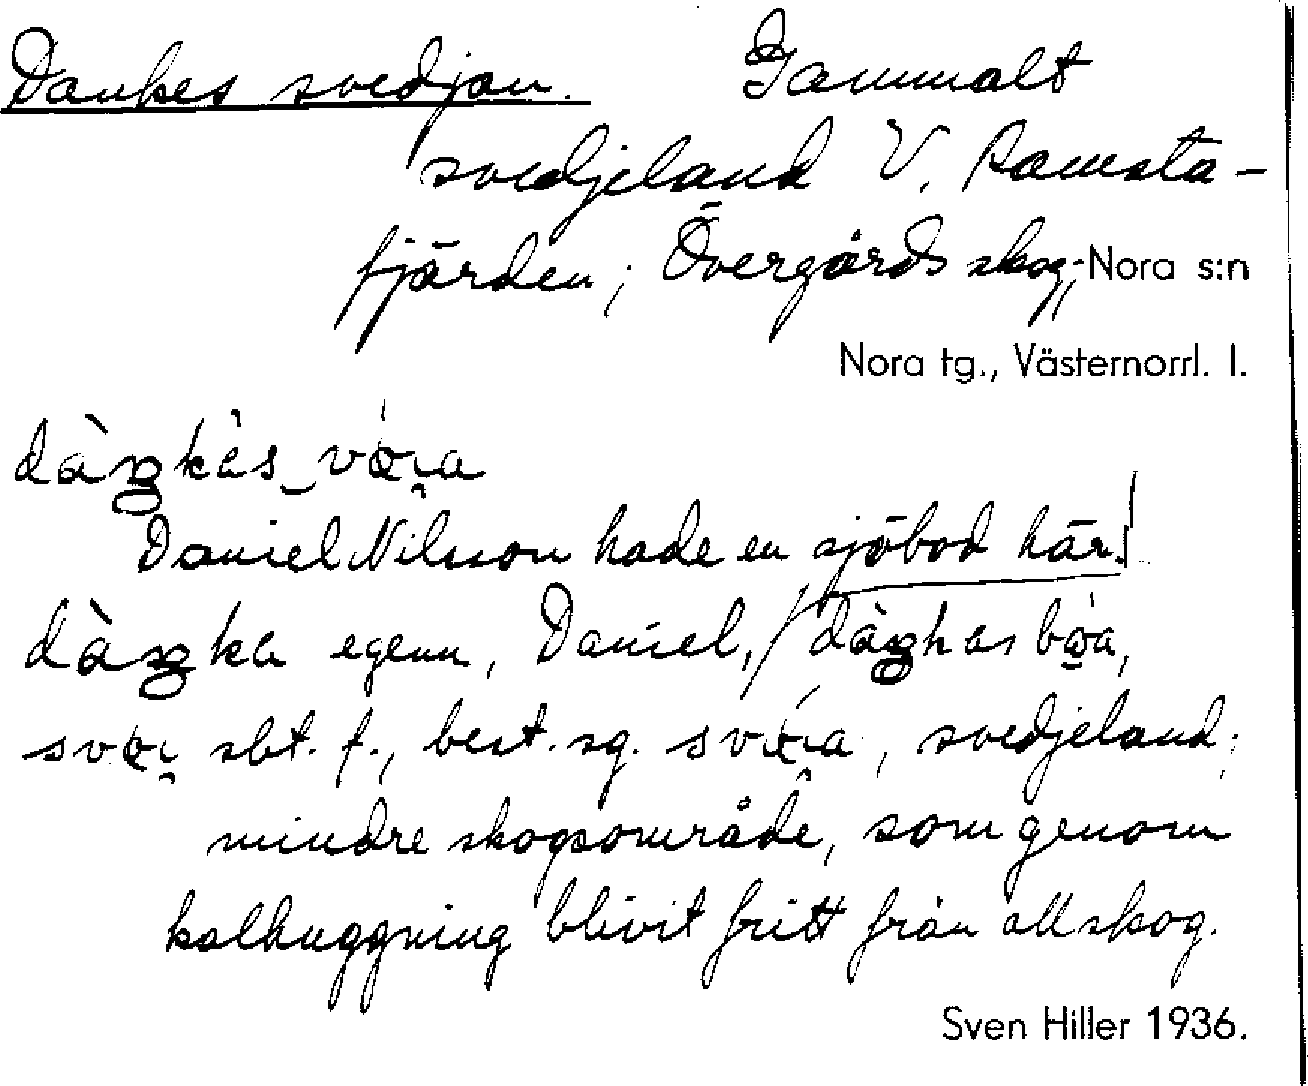 Dankes svedjan. Gammalt
svedjeland V. Ramsta-
fjärden; Övergårds skog; Nora s:n
Nora tg., Västernorrl. l.
Daniel Nilsson hade en sjöbod här!
egenn, Daniel,
sbt. f., best. sg. svedjeland;
mindre skogsområde, som genom
kalhuggning blivit fritt från all skog.
Sven Hiller 1936.